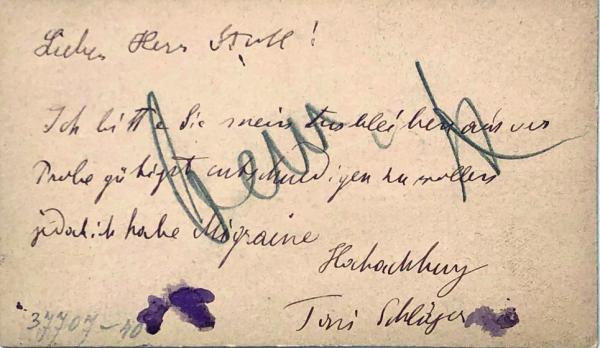 Lieber Herr Stoll!
Ich bitte Sie mein Ausbleiben aus der
Probe gütigst entschuldigen zu wollen
jedoch ich habe Migraine
Hochachtung
Toni Schläger
37707-40